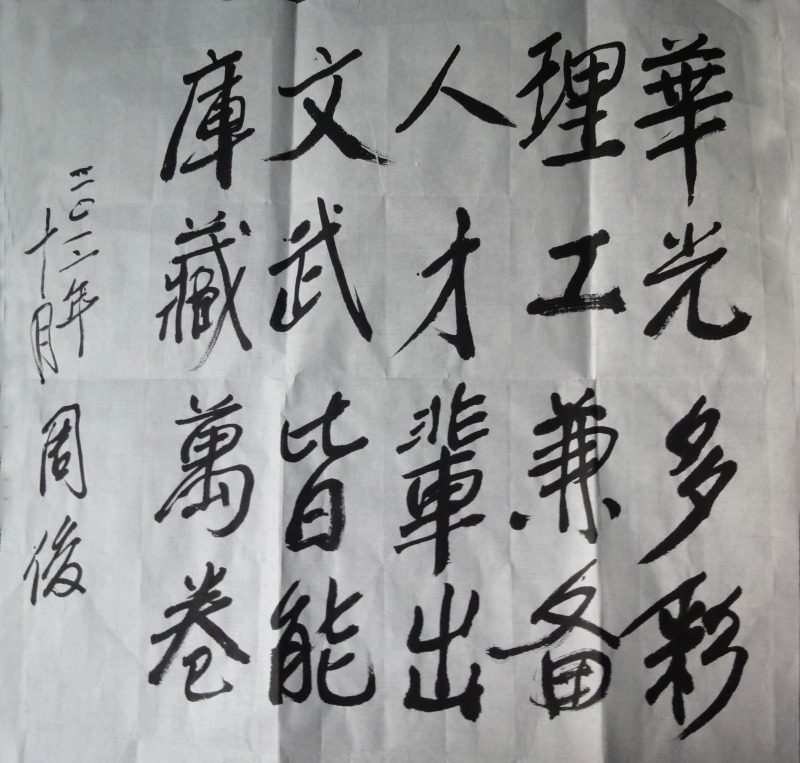 華光多彩
理工兼备
人才輩出
文武皆能
庫藏萬卷
二〇一二年
十月 周俊